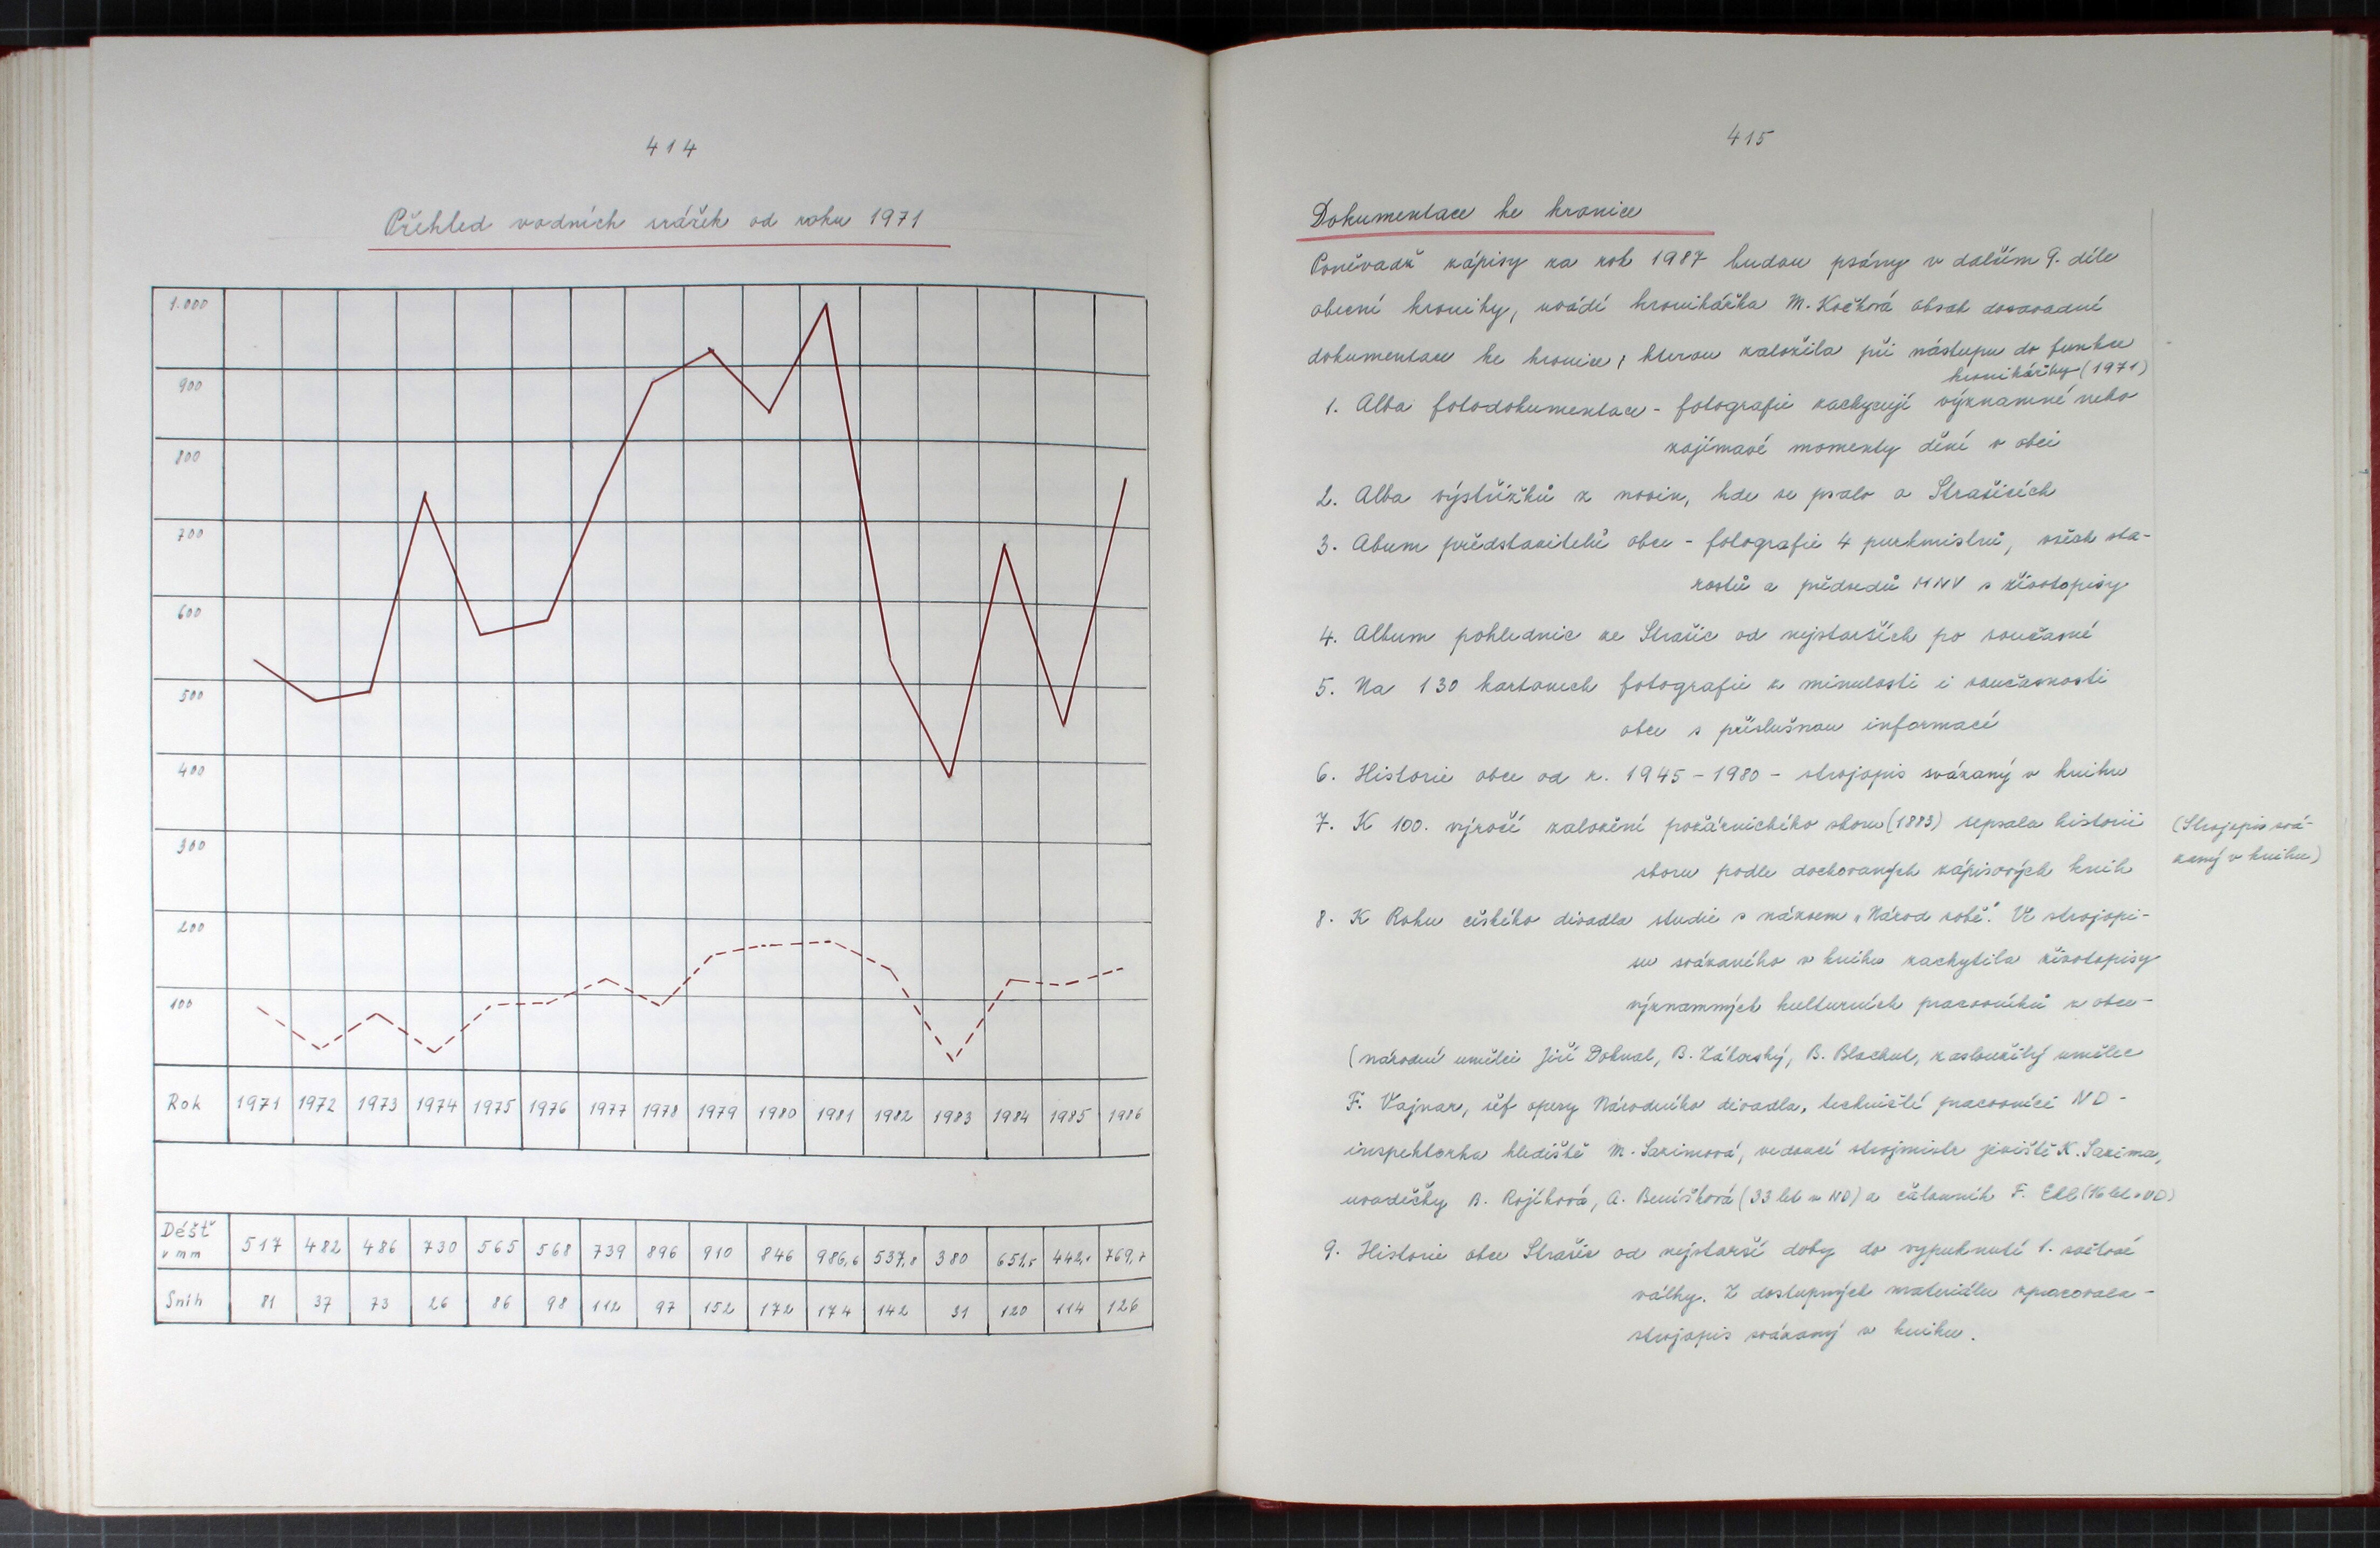 414
Přehled vodních srážek od roku 1971
1.000
900
800
700
600
500
400
300
200
100
Rok 1971 1972 1973 1974 1975 1976 1977 1978 1979 1980 1981 1982 1983 1984 1985 1986
Déšť v mm 517 482 486 730 565 568 739 896 910 846 986,6 537,8 380 651,5 442, 769,7
Sníh 81 37 73 26 86 98 112 97 152 172 174 142 31 120 114 126
415
Dokumentace ke kronice
Poněvadž zápisy za rok 1987 budou psány v dalším 9. díle
obecní kroniky, uvádí kronikářka M. Kočková obsah dosavadní
dokumentace ke kronice, kterou založila při nástupu do funkce
kronikářky (1971)
1. Alba fotodokumentace - fotografie zachycují významné nebo
zajímavé momenty dění v obci
2. Alba výstřižků z novin, kde se psalo o Strašicích
3. Abum představitelů obce - fotografie 4 purkmistrů, všech sta-
rostů a předsedů MNV s životopisy
4. Album pohlednic ze Strašic od nejstarších po současné
5. Na 130 kartonech fotografie z minulosti i současnosti
obce s příslušnou informací
6. Historie obce od r. 1945 - 1980 - strojopis svázaný v knihu
7. K 100. výročí založení požárnického sboru (1883) sepsala historii
(Strojopis svá-
zaný v knihu)
sboru podle dochovaných zápisových knih
8. K Roku českého divadla studie s názvem „Národ sobě." Ve strojopi-
su svázaného v knihu zachytila životopisy
významných kulturních pracovníků z obce -
(národní umělci Jiří Dohnal, B. Záhorský, B. Blachut, zasloužilý umělec
F. Vajnar, šéf opery Národního divadla, techničtí pracovníci ND -
inspektorka hlediště M. Saximová, vedoucí strojmistr jeviště K. Saxima,
uvaděčky B. Rojíková, A. Beníšková (33 let v ND) a čalouník F. Edl (16 let v ND)
9. Historie obce Strašic od nejstarší doby do vypuknutí 1. světové
války. Z dostupných materiálu zpracovala -
strojopis svázaný v knihu.